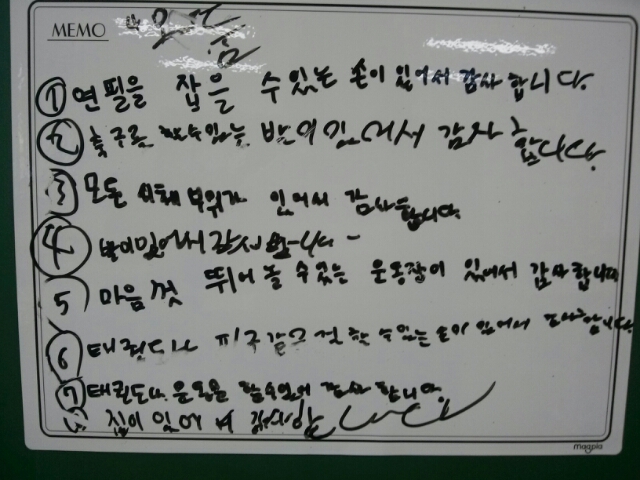 MEMO
① 연필을 잡을 수있는 손이 있어서 감사 합니다.
② 축구를 할수있는 발이있어서 감사합니다.
③ 모든 신체 부위가 있어서 감사합니다.
④ 발이있어서 감사합니다
5 마음껏 뛰어 놀 수 있는 운동장이 있어서 감사합니다
⑥ 태권도나 피구같은 것 할 수있는 손이 있어서 감사합니다
⑦ 태권도나 운동을 할수있어 감사 합니다.
집이 있어서 감사합니다
magpia